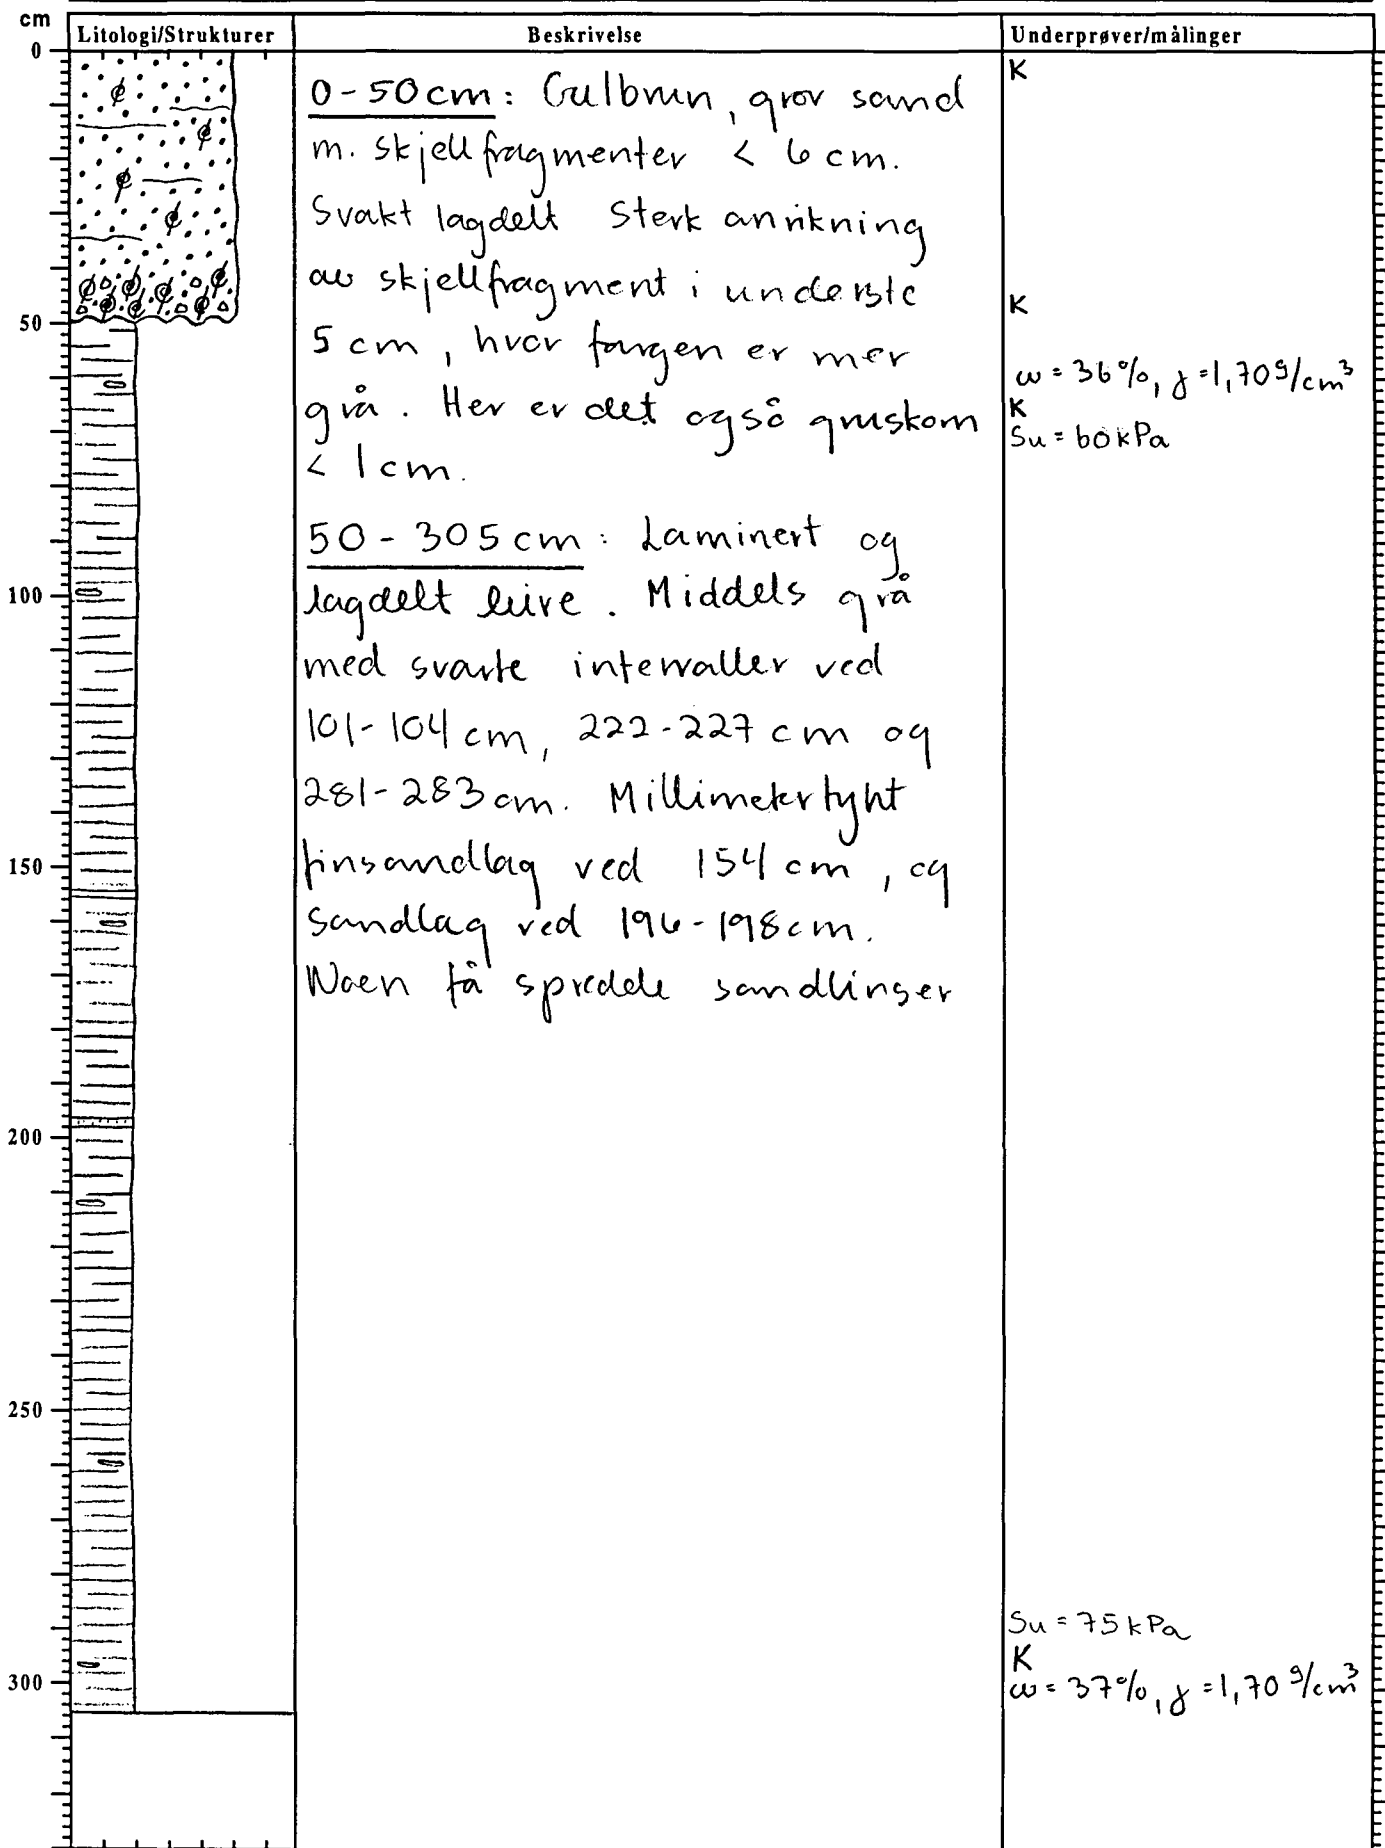 cm
Litologi/Strukturer Beskrivelse Underprøver/målinger
0
K
0-50cm: Gulbrun, grov sand
m. skjellfragmenter < 6 cm.
Svakt lagdelt Sterk anrikning
av skjellfragment i underste
K
50
5 cm, hvor fargen er mer
w = 36%, γ = 1,70 g/cm³
grå. Her er det også gruskorn
K
Su = 60 kPa
< 1 cm.
50-305cm: Laminert og
100
lagdelt leire. Middels grå
med svarte intervaller ved
101-104 cm, 222-227 cm og
281-283 cm. Millimetertykt
150
finsandlag ved 154 cm, og
Sandlag ved 196-198cm.
Noen få spredde sandlinser
200
250
Su = 75 kPa
K
300
w = 37%, γ = 1,70 g/cm³